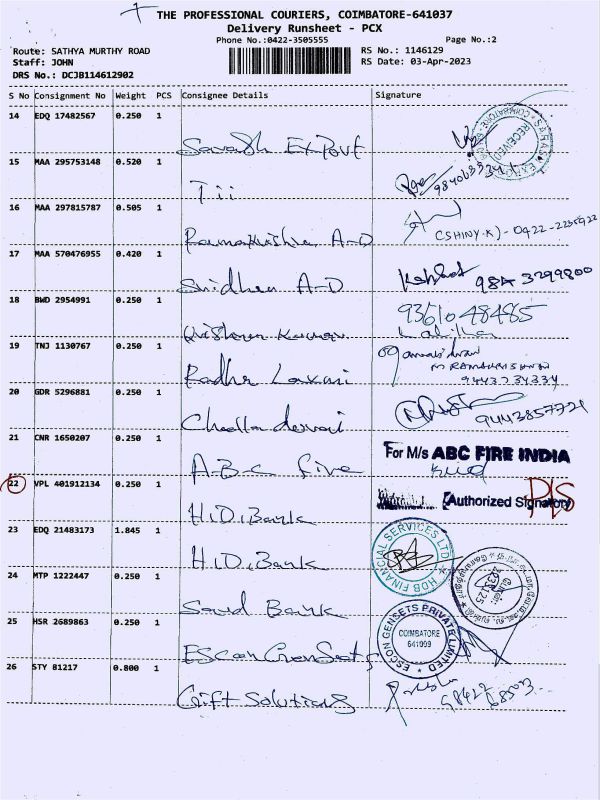 THE PROFESSIONAL COURIERS, COIMBATORE-641037
Delivery Runsheet - PCX
Phone No.:0422-3505555 Page No.:2
Route: SATHYA MURTHY ROAD RS No.: 1146129
Staff: JOHN RS Date: 03-Apr-2023
DRS No.: DCJB114612902
S No Consignment No Weight PCS Consignee Details Signature
14 EDQ 17482567 0.250 1
RECEIVED
15 MAA 295753148 0.520 1
Tii
16 MAA 297815787 0.505 1
(SHINY.K) - 0422-2235922
Ramakrishna A-D
17 MAA 570476955 0.420 1
98A 3299800
Sridhar A-D
18 BWD 2954991 0.250 1
93610 48485
Lalitha
19 TNJ 1130767 0.250 1
M RAMAKRISHNAN
9443734334
Radha Laxmi
20 GDR 5296881 0.250 1
9443857721
Chella durai
21 CNR 1650207 0.250 1
For M/s ABC FIRE INDIA
A-B-C Fire
22 VPL 401912134 0.250 1
Authorized Signatory
H.D.Bank
23 EDQ 21483173 1.845 1
HDB FINANCIAL SERVICES LTD
H.D.Bank
24 MTP 1222447 0.250 1
Saud Bank
25 HSR 2689863 0.250 1
ESCON GENSETS PRIVATE LIMITED
COIMBATORE
641009
Escon GenSets
26 STY 81217 0.800 1
98422
Gift Solutions